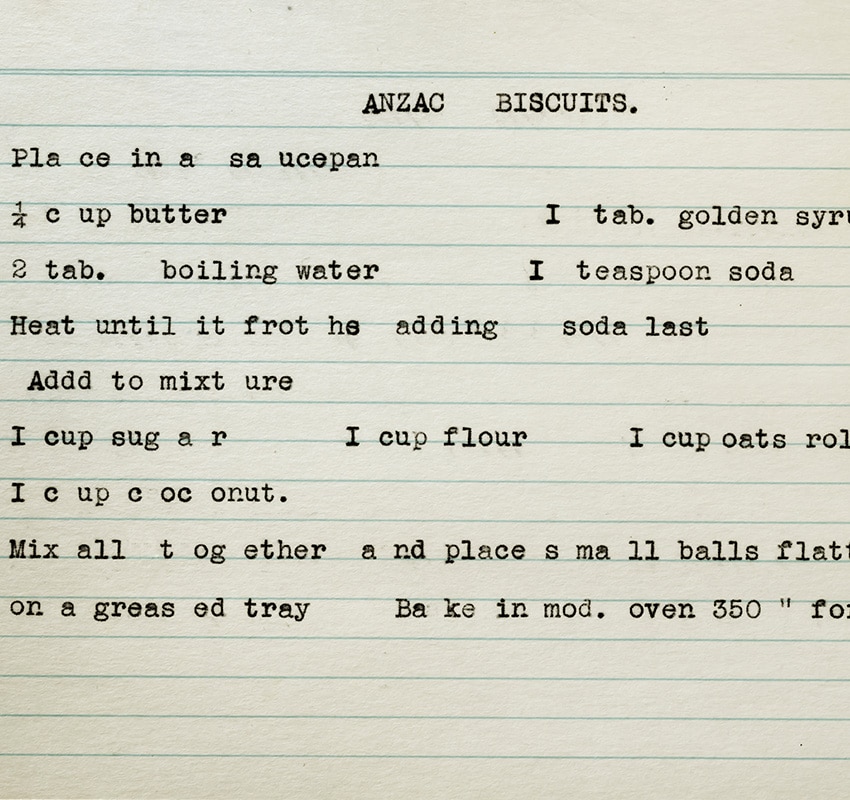 ANZAC BISCUITS.
Pla ce in a sa ucepan
¼ c up butter I tab. golden syru
2 tab. boiling water I teaspoon soda
Heat until it frot hs adding soda last
Addd to mixt ure
I cup sug a r I cup flour I cup oats rol
I c up c oc onut.
Mix all t og ether a nd place s ma ll balls flatt
on a greas ed tray Ba ke in mod. oven 350 " for